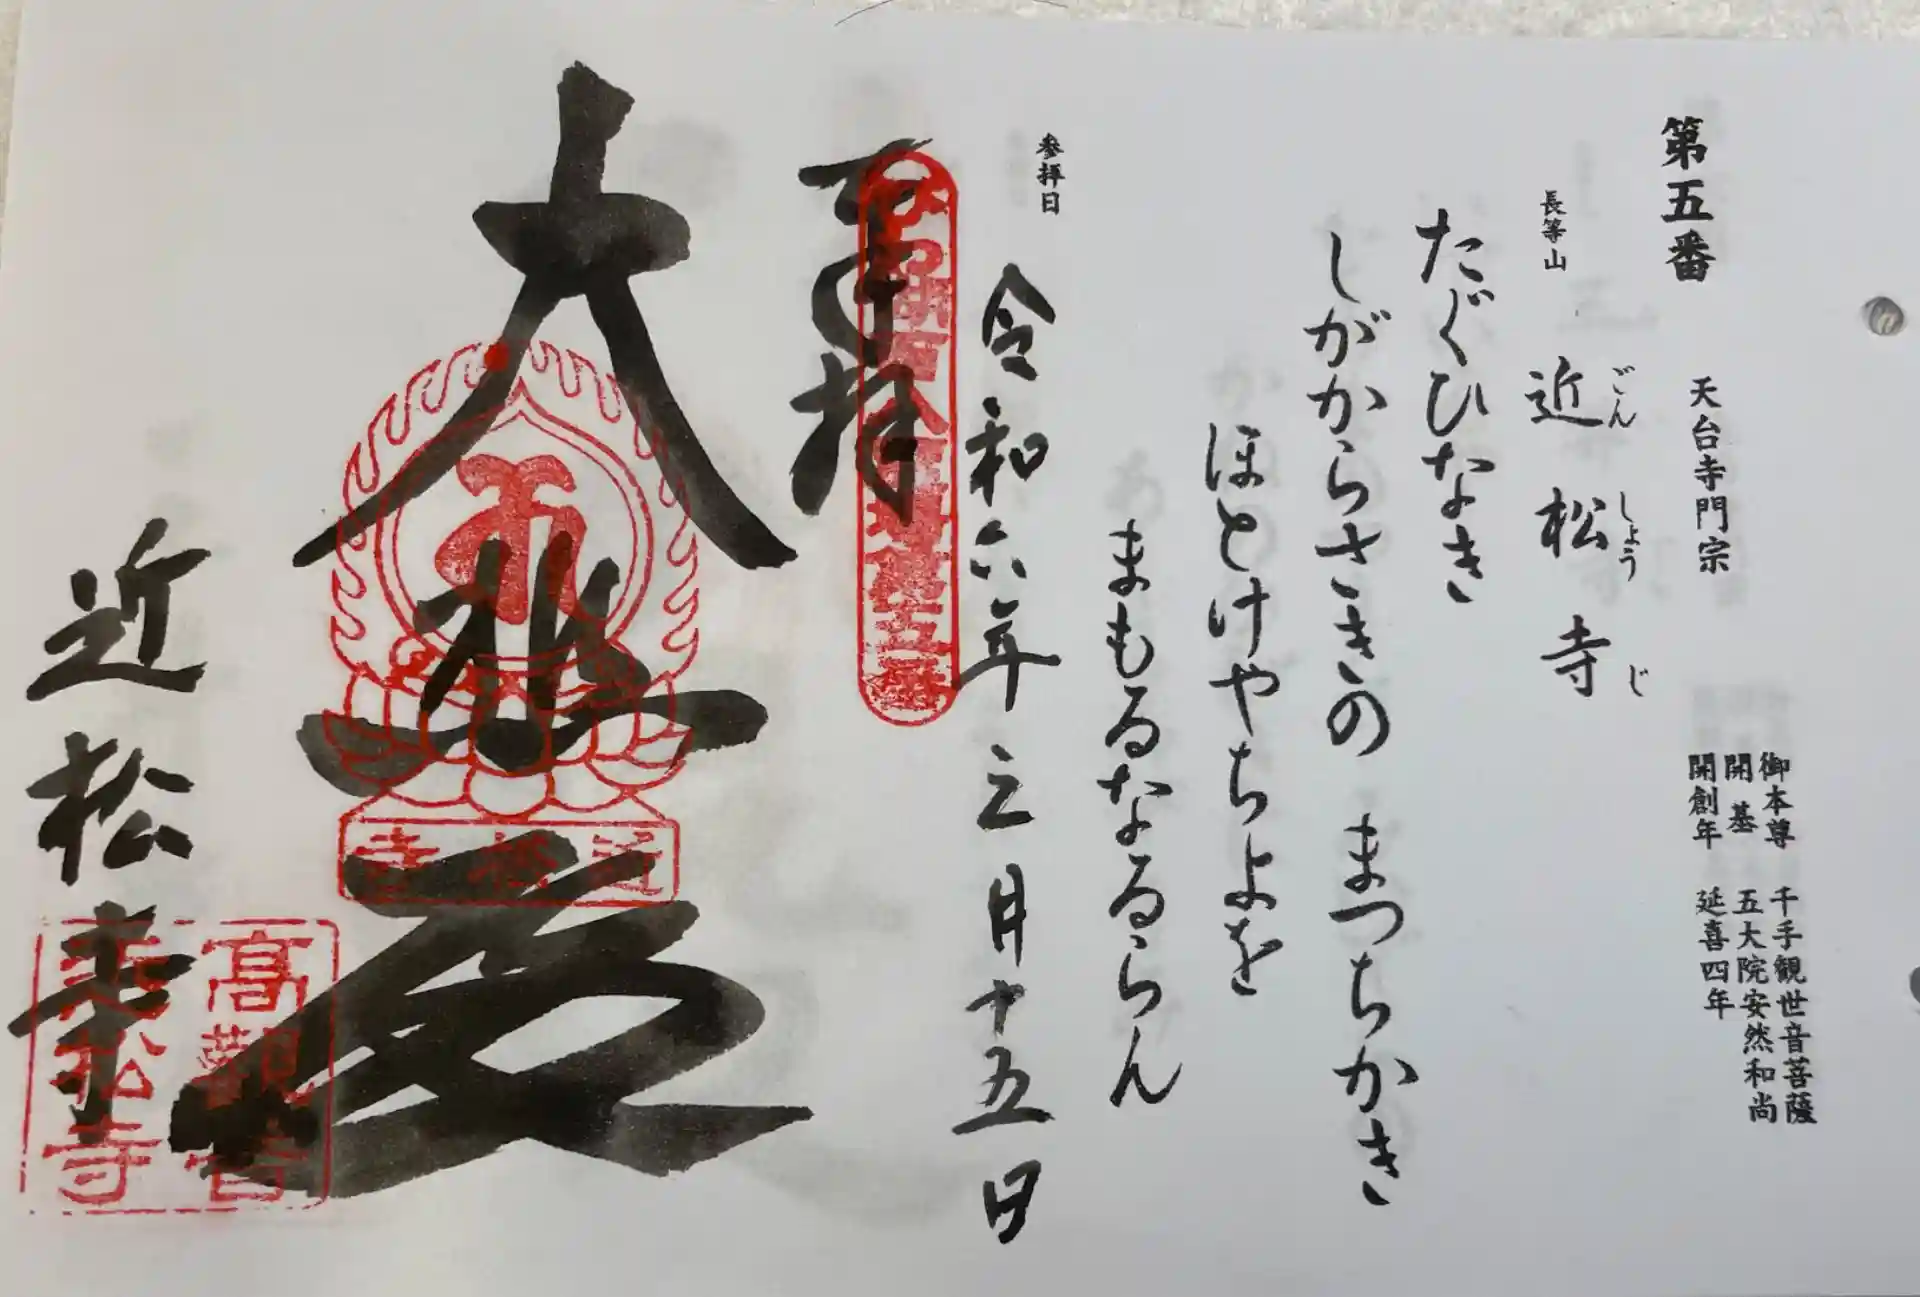 第五番 天台寺門宗
御本尊 千手観世音菩薩
開基 五大院安然和尚
開創年 延喜四年
長等山 近松寺
ごん しょう じ
たぐひなき
しがからさきの まつちかき
ほとけやちよを
まもるなるらん
参拝日
令和六年三月十五日
奉拝
大悲殿
近松寺
近松寺
高観音
近松寺